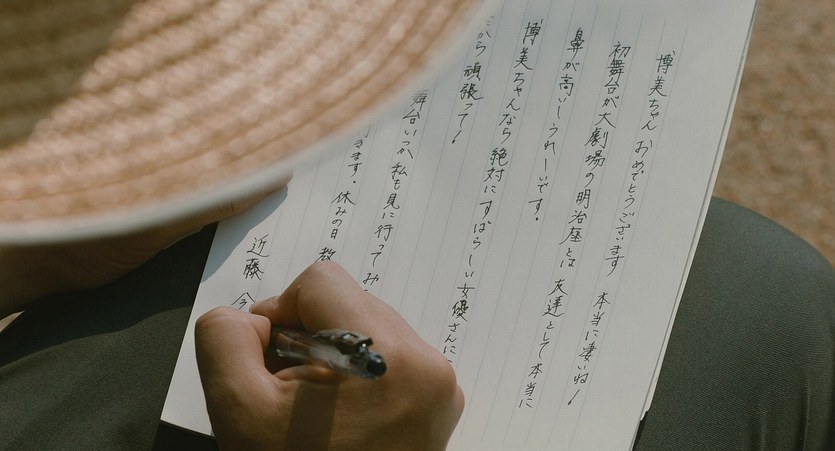 博美ちゃん おめでとうございます 本当に凄いね!
初舞台が大劇場の明治座とは 友達として 本当に
鼻が高いしうれしいです。
博美ちゃんなら 絶対にすばらしい女優さんに
から 頑張って!
舞台いつか 私も見に行ってみ
きます。休みの日 教
近藤 今